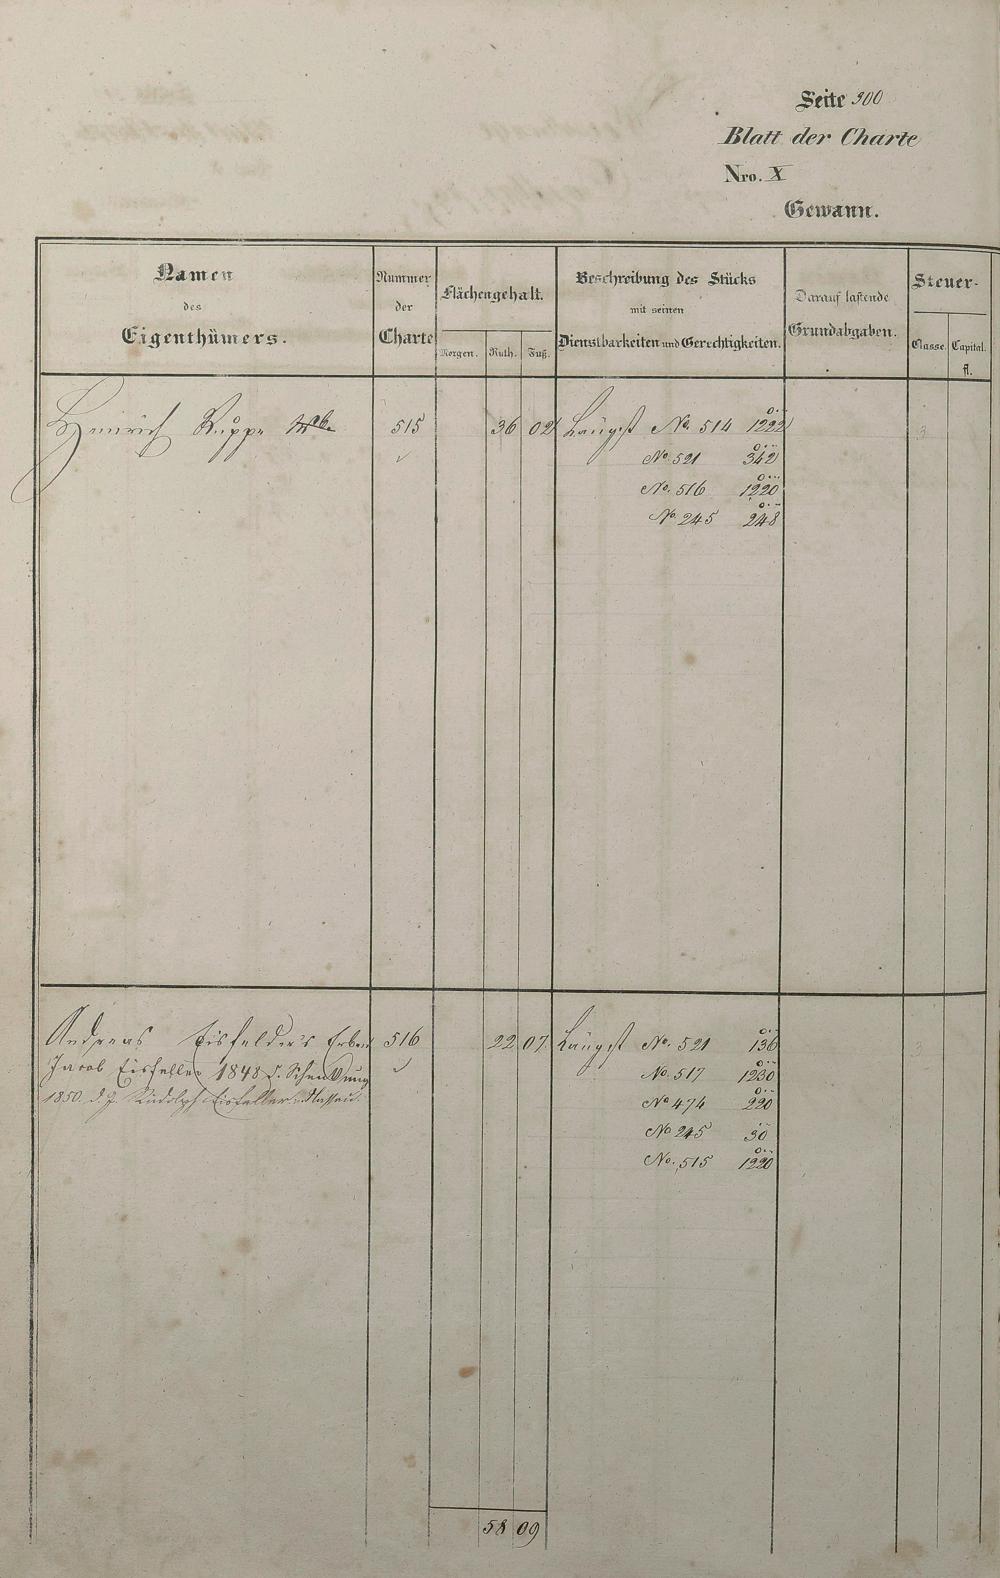 Seite 300
Blatt der Charte
Nro. X
Gewann.
Namen
des
Eigenthümers.
Nummer
der
Charte
Flächengehalt.
Morgen. Ruth. Fuß.
Beschreibung des Stücks
mit seinen
Dienstbarkeiten und Gerechtigkeiten.
Darauf lastende
Grundabgaben.
Steuer-
Classe. Capital.
fl.
Heinrich Ruppe 515 36 02 Längst No. 514 1222
No. 521 342
No. 516 1220
No. 245 248
3
Andreas Eisfelder's Erben 516 22 07 Längst No. 521 136
Jacob Eisfeller 1848 d. Schenkung No. 517 1230
1850. d. J. Rudolph Eisfeller Nassau. No 474 220
No 245 30
No. 515 1220
3
58 09